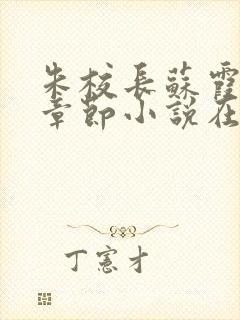 朱校長蘇霞
章節小說在
丁憲才